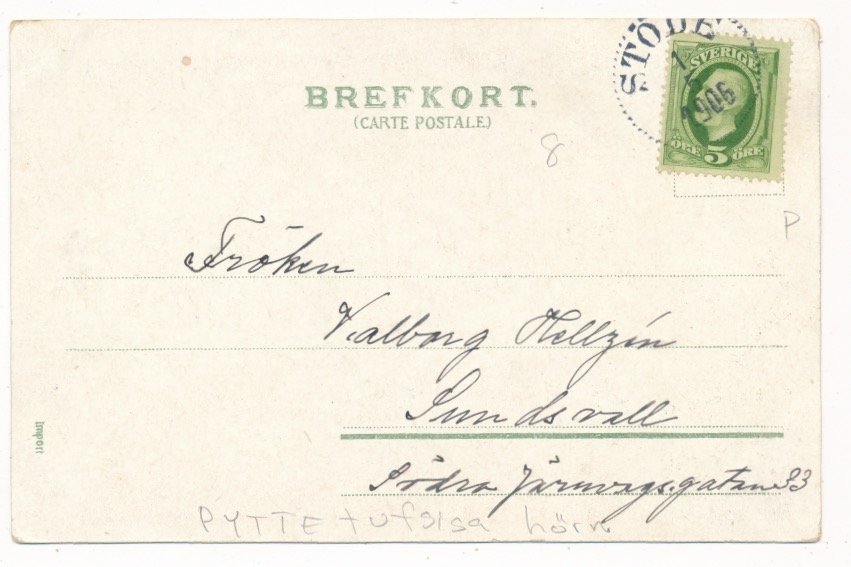 STÖDE
1
1906
SVERIGE
ÖRE 5 ÖRE
BREFKORT.
(CARTE POSTALE.)
8
P
Fröken
Valborg Hellzín
Sundsvall
Södra Järnvägsgatan 33
Import
PYTTE hörn